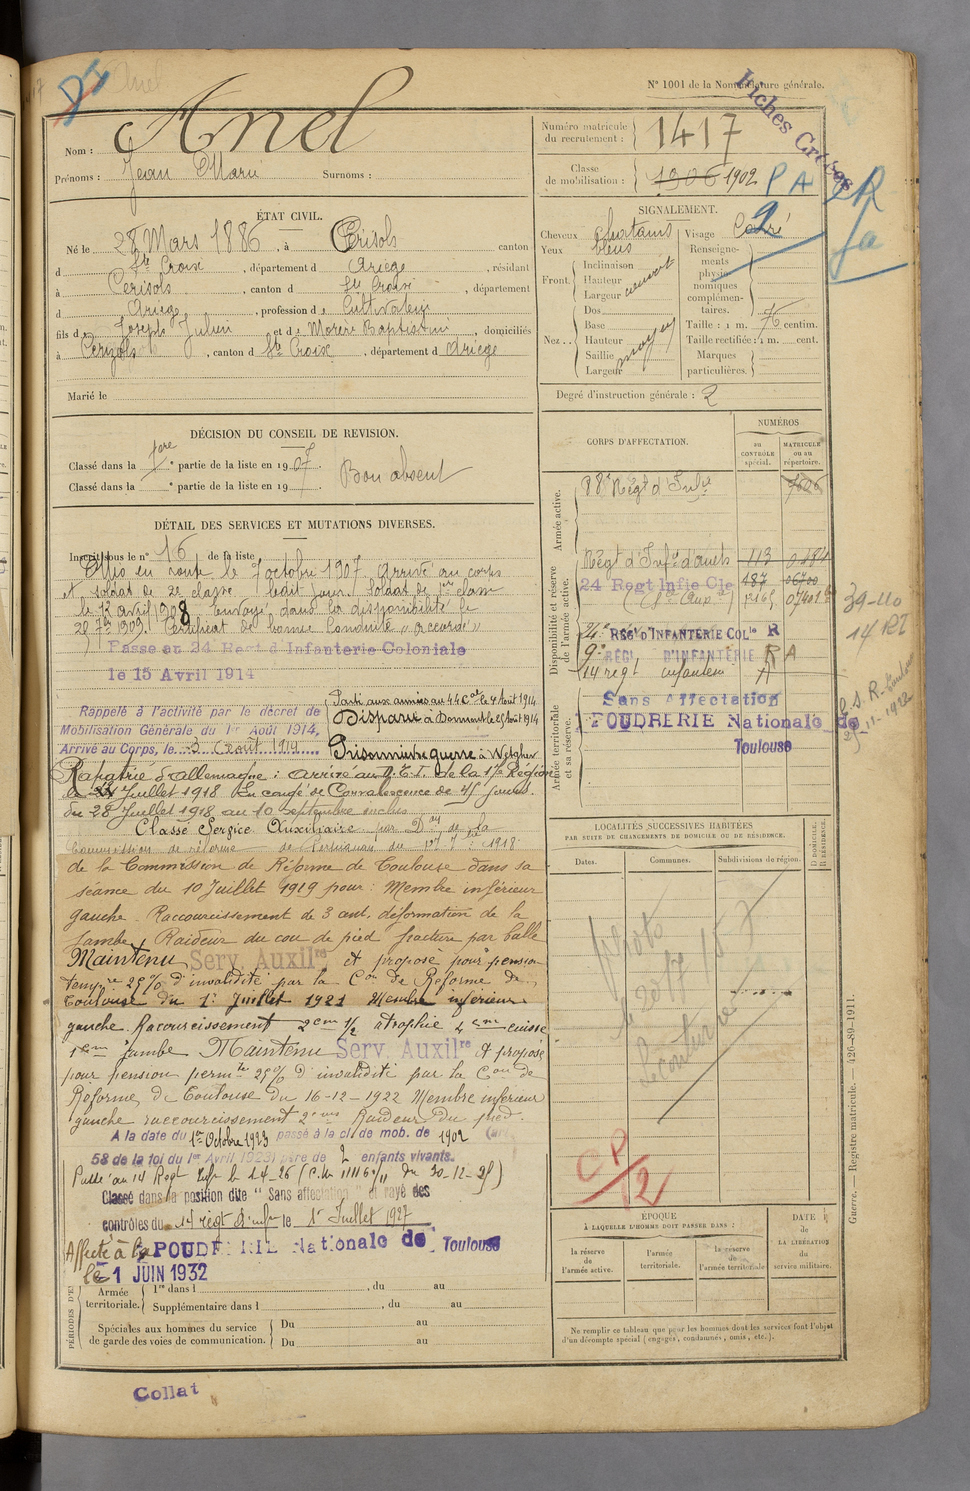 N° 1001 de la Nomenclature générale.
Fiches Croisées
Nom : Anel
Prénoms : Jean Marie Surnoms :
Numéro matricule du recrutement : 1417
Classe de mobilisation : 1906 1902
P A 2 R
ÉTAT CIVIL.
Né le 28 Mars 1886, à Cerisols canton
d Ste Croix, département d Ariège, résidant
à Cerisols, canton d Ste Croix, département
d Ariège, profession de Cultivateur
fils de Joseph Julien et de Morère Baptistine, domiciliés
à Cerizols, canton d Ste Croix, département d Ariège
Marié le
SIGNALEMENT.
Cheveux chatains Visage Carré
Yeux bleus
Front. Inclinaison
Hauteur
Largeur
Nez.. Dos
Base
Hauteur
Saillie
Largeur
moyen
Renseignements physionomiques complémentaires.
Taille : 1 m. 76 centim.
Taille rectifiée : 1 m. cent.
Marques particulières.
Degré d'instruction générale : 2
DÉCISION DU CONSEIL DE REVISION.
Classé dans la 1ère partie de la liste en 1907.
Classé dans la e partie de la liste en 19
Bon absent
DÉTAIL DES SERVICES ET MUTATIONS DIVERSES.
Inscrit sous le n° 16 de la liste
Mis en route le 7 octobre 1907. Arrivé au corps
et soldat de 2e classe, ledit jour. Soldat de 1re classe
le 12 avril 1908. Envoyé dans la disponibilité le
28 7bre 1909. Certificat de bonne conduite "accordé"
Passé au 24 Regt d Infanterie Coloniale
le 15 Avril 1914
Rappelé à l'activité par le décret de
Mobilisation Générale du 1er Août 1914,
Arrivé au Corps, le 3 Août 1914
Parti aux armées au 44 Cal le 7 Août 1914
Disparu à le 25 Août 1914
Prisonnier guerre à
Rapatrié d'allemagne : arrivé au D.E.I. de la 17e Région
le Juillet 1918 En congé de Convalescence de 45 jours.
du 28 Juillet 1918 au 10 septembre inclus
Classé Service Auxiliaire par Don de la
Commission de réforme de Perpignan du 7bre 1918.
de la Commission de Réforme de Toulouse dans sa
séance du 10 Juillet 1919 pour : Membre inférieur
gauche. Raccourcissement de 3 cent, déformation de la
Jambe, Raideur du cou de pied fracture par balle
Maintenu Serv. Auxilre et proposé pour pension
tempre 25% d'invalidité par la Con de Réforme de
Toulouse du 1er Juillet 1921 Membre inférieur
gauche. Racourcissement 2cm 1/2 atrophie 4cm cuisse
1cm jambe Maintenu Serv. Auxilre et proposé
pour pension permte 25% d'invalidité par la Con de
Réforme de Toulouse du 16-12-1922 Membre inférieur
gauche raccourcissement 2cms Raideur du pied.
A la date du 1er Octobre 1923 passé à la cl. de mob. de 1902 (art
58 de la loi du 1er Avril 1923) père de 2 enfants vivants.
Passé au 14 Regt Inf le 1-4-26 (C.M. 11116 1/11 du 30-12-25)
Classé dans la position dite "Sans affectation" et rayé des
contrôles du 14 régt d'inf le 1er Juillet 1927
Affecté à la POUDRERIE Nationale de Toulouse
le 1 JUIN 1932
PÉRIODES D'EX
Armée territoriale. 1re dans l , du au
Supplémentaire dans l , du au
Spéciales aux hommes du service de garde des voies de communication. Du au
Du au
Collat
CORPS D'AFFECTATION.
NUMÉROS
au CONTRÔLE spécial.
MATRICULE ou au répertoire.
Armée active.
88e Régt d'Infie
7606
Disponibilité et réserve de l'armée active.
Régt d'Infie d'auch 113
24 Regt Infie Cle 487 06700
24e RÉGt D'INFANTERIE COLle R
9e RÉGt D'INFANTERIE R A
14 regt infanterie A
Armée territoriale et sa réserve.
Sans Affectation
POUDRERIE Nationale de
Toulouse
39-110
14 RI
LOCALITÉS SUCCESSIVES HABITÉES
PAR SUITE DE CHANGEMENTS DE DOMICILE OU DE RÉSIDENCE.
D DOMICILE. R RÉSIDENCE.
Dates. Communes. Subdivisions de région.
CP/12
ÉPOQUE
À LAQUELLE L'HOMME DOIT PASSER DANS :
DATE DE LA LIBÉRATION du service militaire.
la réserve de l'armée active.
l'armée territoriale.
la réserve de l'armée territoriale
Ne remplir ce tableau que pour les hommes dont les services font l'objet
d'un décompte spécial (engagés, condamnés, omis, etc.).
Guerre. — Registre matricule. — 426-89-1911.